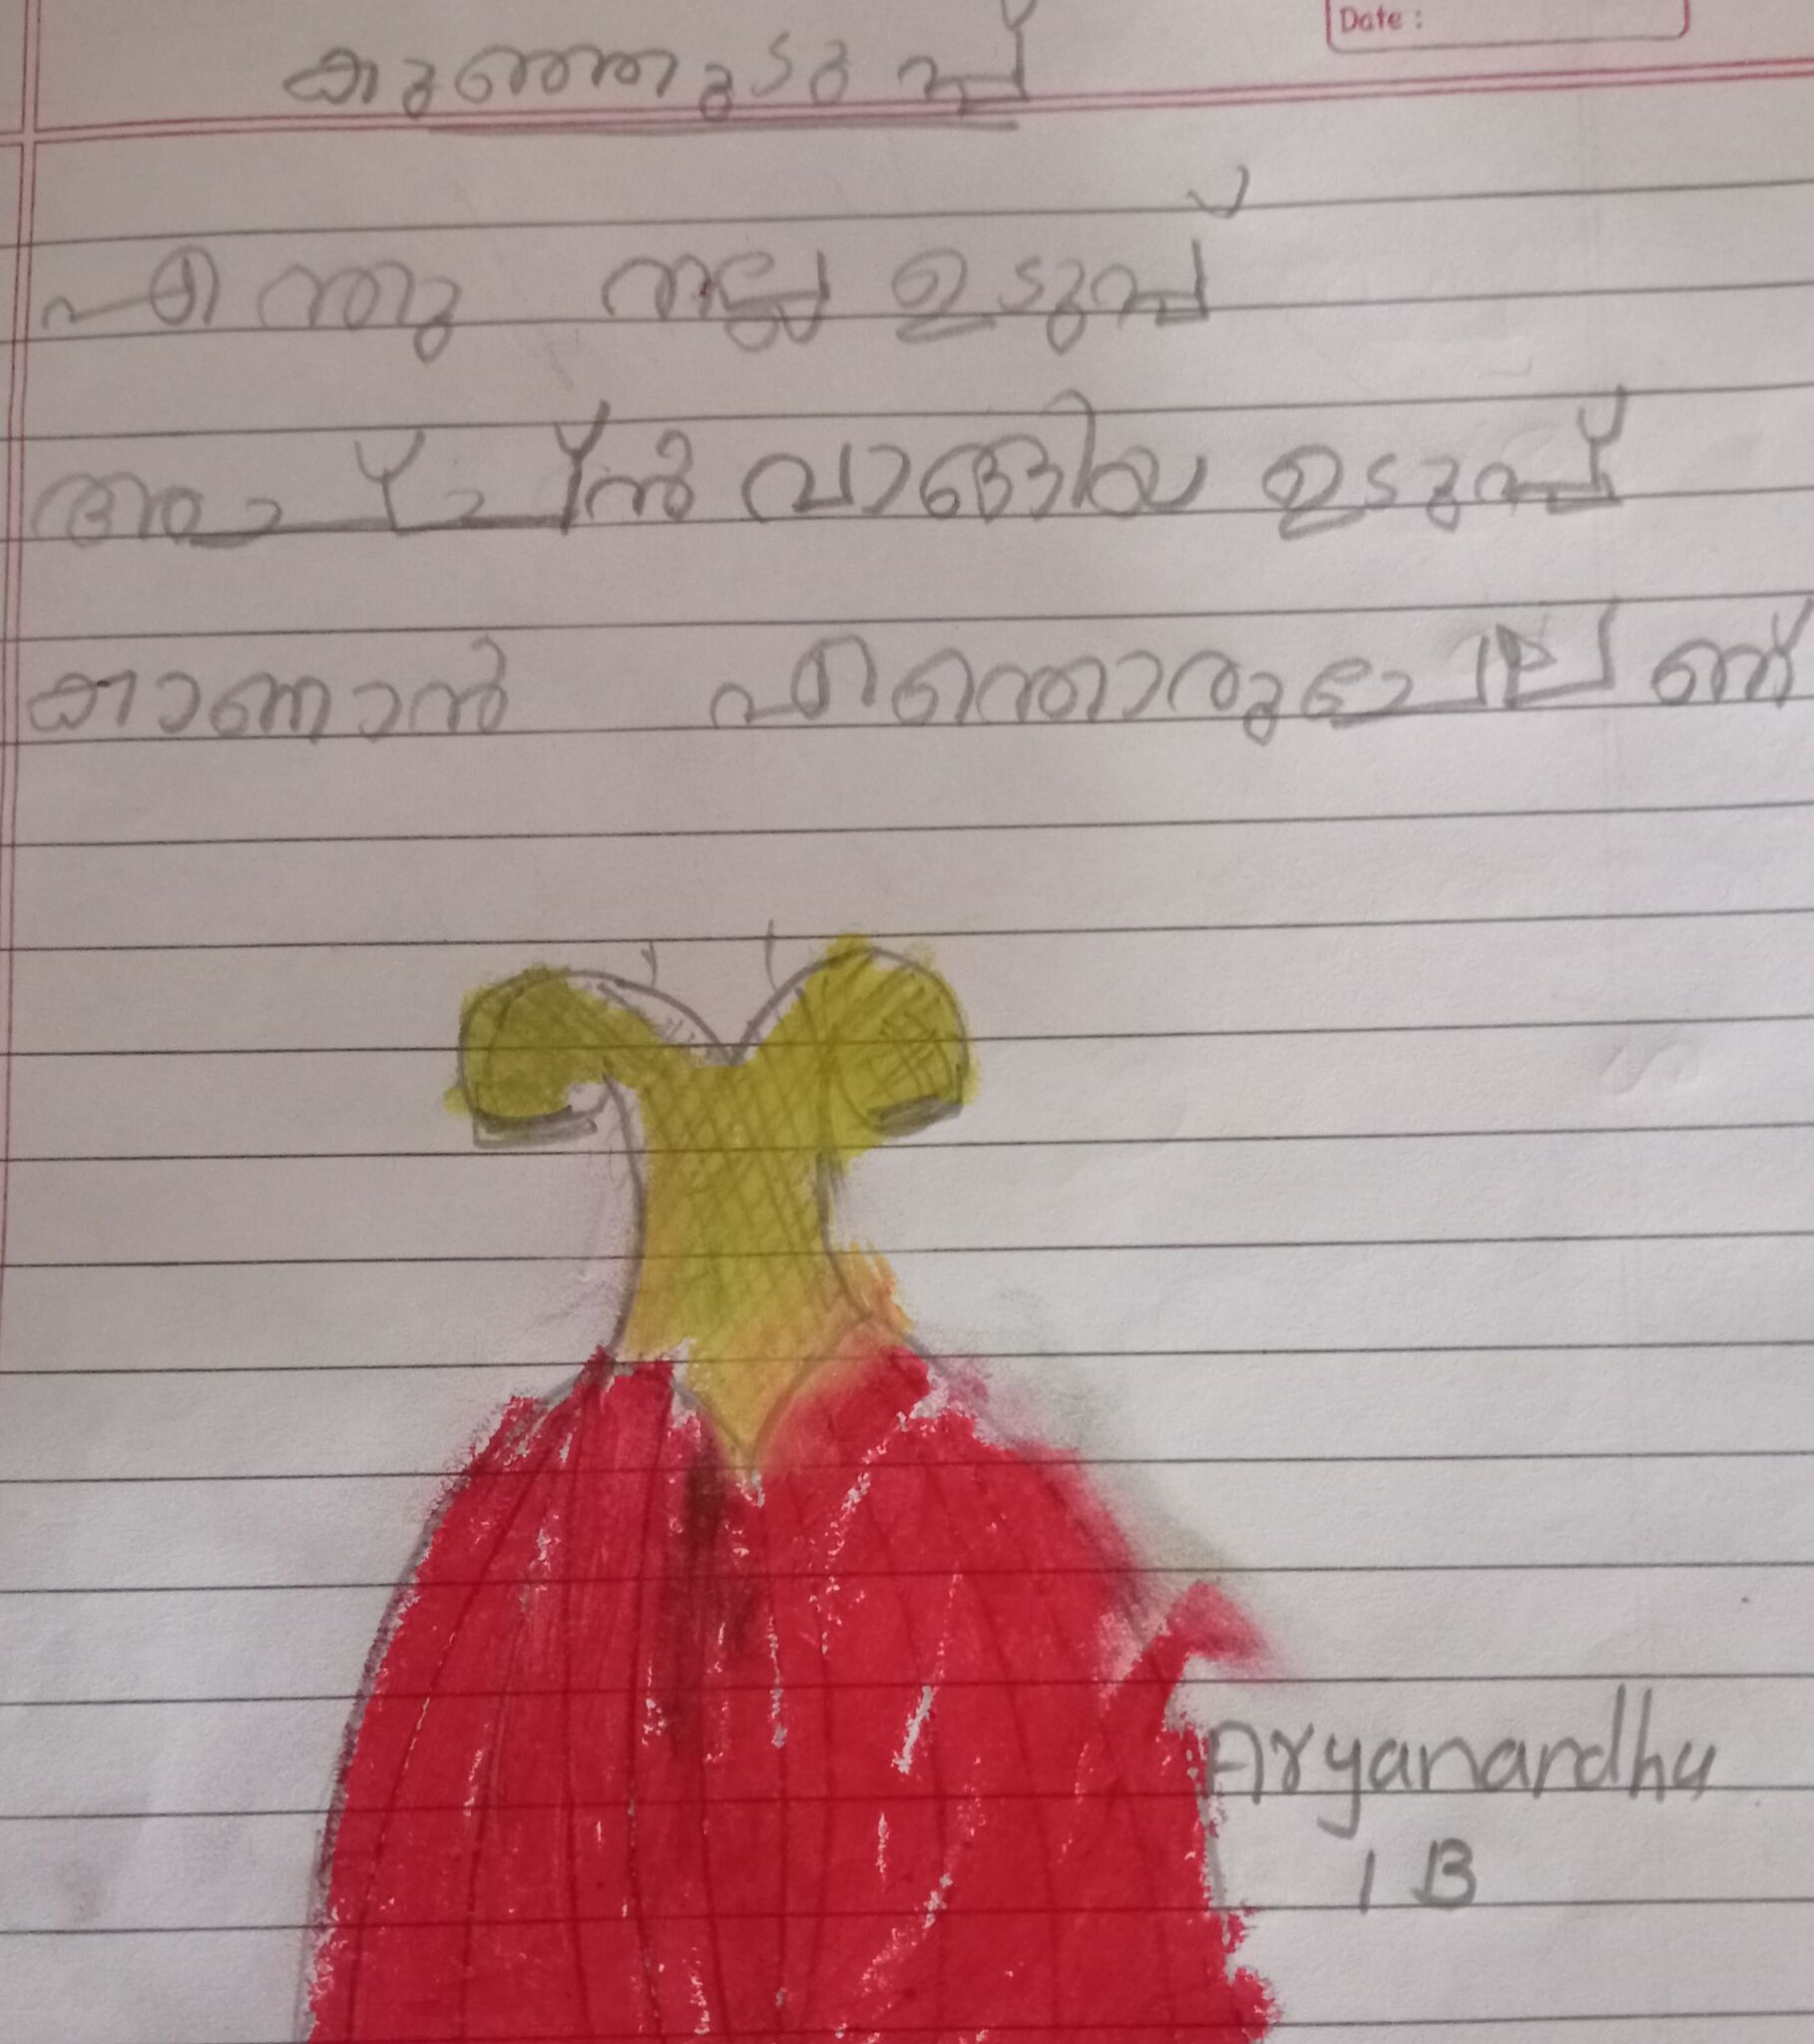 Date :
കുഞ്ഞുടുപ്പ്
എന്തു നല്ല ഉടുപ്പ്
അച്ഛൻ വാങ്ങിയ ഉടുപ്പ്
കാണാൻ എന്തൊരു
Aryanandhu
1 B